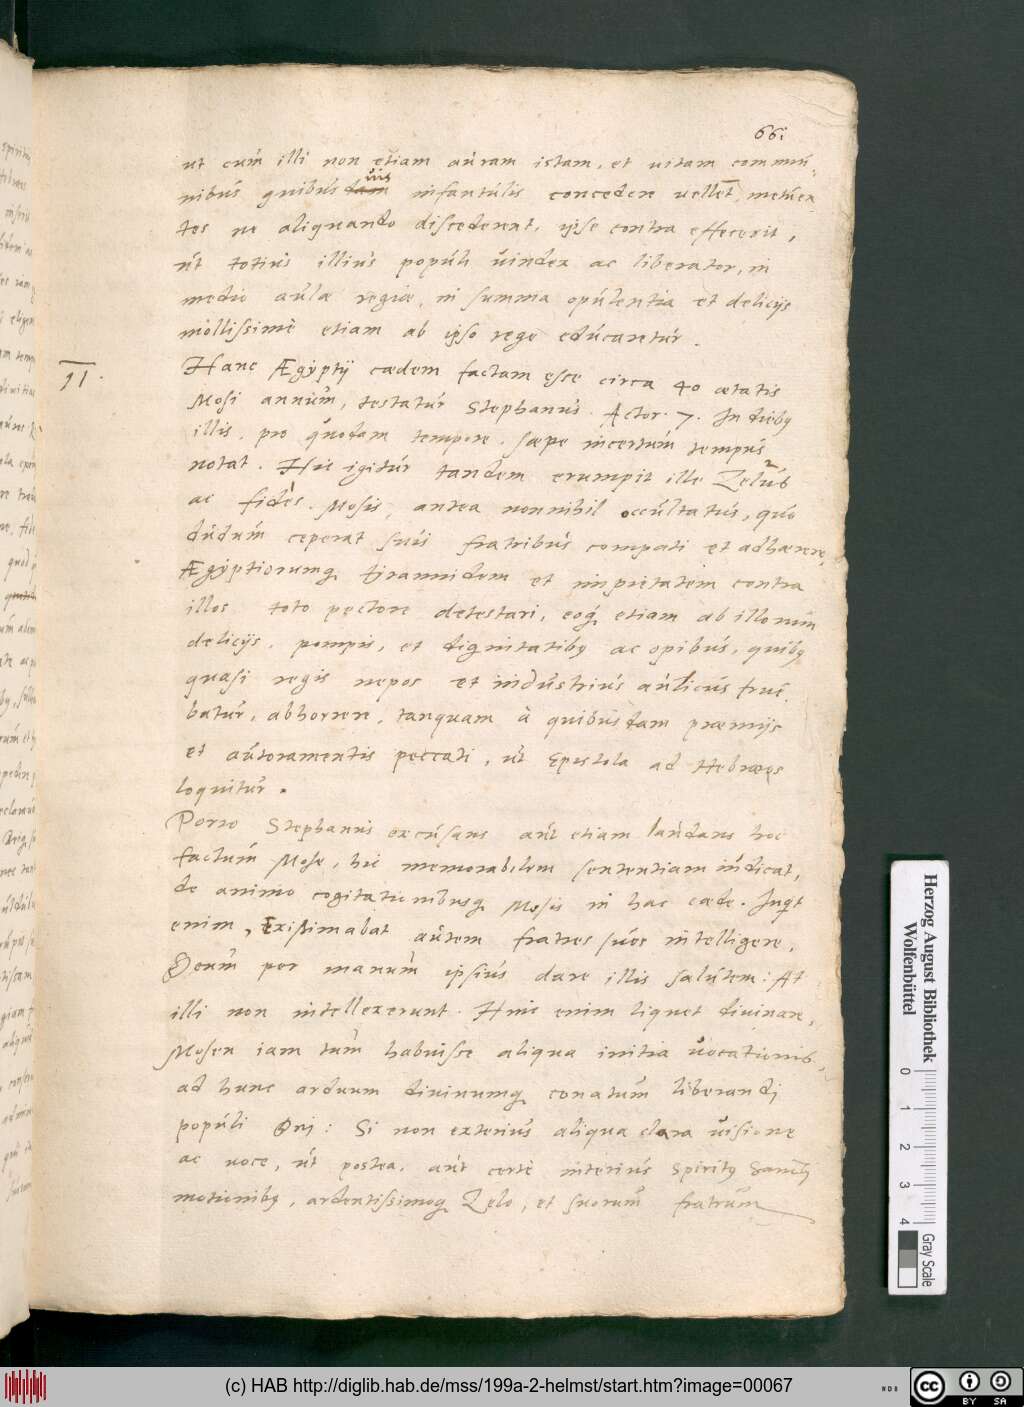 66.
ut cum illi non etiam auram istam, et uitam commu-
nibus quibusuis infantulis concedere uellent, metuen
tes ne aliquando discederent, ipse contra effecerit,
ut totius illius populi uindex ac liberator, in
medio aulæ regiæ, in summa opulentia et delicijs
mollissimè etiam ab ipso rege educaretur.
11.
Hanc Ægyptij cædem factam esse circa 40 ætatis
Mosi annum, testatur Stephanus. Actor. 7. In diebus
illis, pro quodam tempore, sæpe incertum tempus
notat. Hic igitur tandem erumpit ille Zelus
ac fides Mosis, antea nonnihil occultatus, quo
dudum ceperat suis fratribus compati et adhærere,
Ægyptiorumq́ tirannidem et impietatem contra
illos toto pectore detestari, eoq́ etiam ab illorum
delicijs, pompis, et dignitatibus ac opibus, quibus
quasi regis nepos et industrius aulicus frue
batur, abhorrere, tanquam à quibusdam præmijs
et autoramentis peccati, ut Epistola ad Hebræos
loquitur.
Porro Stephanus excusans aut etiam laudans hoc
factum Mose, hic memorabilem sententiam indicat,
de animo cogitationibusq́ Mosis in hac cæde. Inquit
enim, Existimabat autem fratres suos intelligere,
Deum per manum ipsius dare illis salutem: At
illi non intellexerunt. Hinc enim liquet diuinare,
Mosen iam tum habuisse aliqua initia uocationis
ad hunc arduum diuinumq́ conatum liberandi
populi Dei: Si non exterius aliqua clara uisione
ac uoce, ut postea, aut certè interius Spiritus Sancti
motionibus, ardentissimoq́ Zelo, et suorum fratrum
Herzog August Bibliothek
Wolfenbüttel
0 1 2 3 4
Gray Scale
(c) HAB http://diglib.hab.de/mss/199a-2-helmst/start.htm?image=00067
cc BY SA